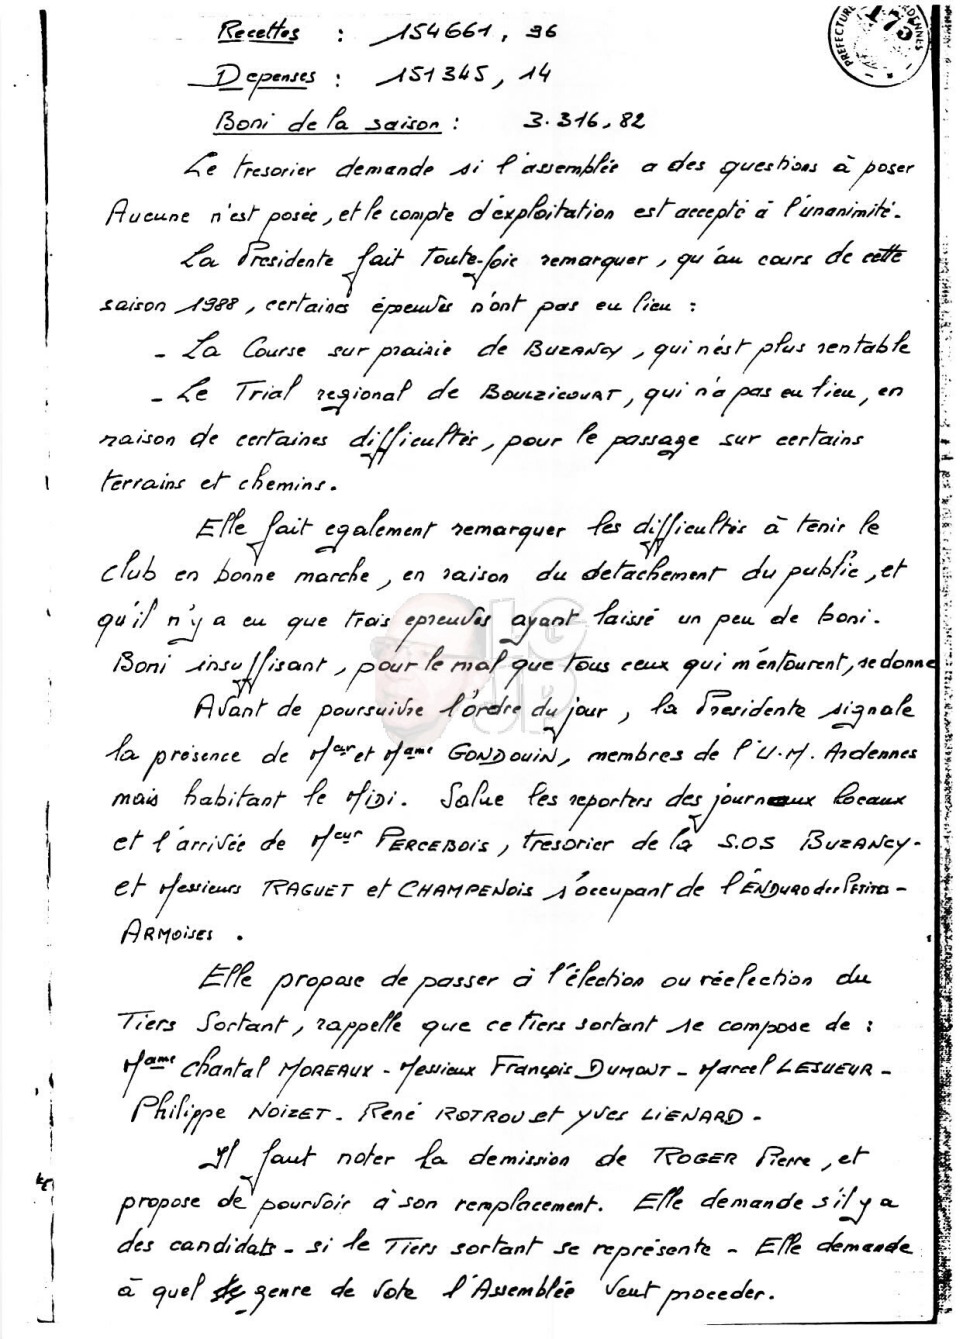 Recettes : 154661,96
PREFECTURE ARDENNES
175
Depenses : 151345,14
Boni de la saison : 3.316,82
Le tresorier demande si l'assemblée a des questions à poser
Aucune n'est posée, et le compte d'exploitation est accepté à l'unanimité.
La Presidente fait toute-fois remarquer, qu'au cours de cette
saison 1988, certaines épreuves n'ont pas eu lieu :
- La Course sur prairie de BUZANCY, qui n'est plus rentable
- Le Trial regional de BOULZICOURT, qui n'a pas eu lieu, en
raison de certaines difficultés, pour le passage sur certains
terrains et chemins.
Elle fait egalement remarquer les difficultés à tenir le
club en bonne marche, en raison du detachement du public, et
qu'il n'y a eu que trois epreuves ayant laissé un peu de boni.
Boni insuffisant, pour le mal que tous ceux qui m'entourent, se donne
Avant de poursuivre l'ordre du jour, la Presidente signale
la présence de Meur et Mame GONDOUIN, membres de l'U.M. Ardennes
mais habitant le MIDI. Salue les reporters des journaux locaux
et l'arrivée de Meur PERCEBOIS, tresorier de la S.O.S BUZANCY-
et Messieurs RAGUET et CHAMPENOIS s'occupant de l'ENDURO des PETITES-
ARMOISES.
Elle propose de passer à l'élection ou réelection du
Tiers Sortant, rappelle que ce tiers sortant se compose de :
Mame Chantal MOREAUX - Messieux François DUMONT - Marcel LESUEUR -
Philippe NOIZET - René ROTROU et YVES LIENARD -
Il faut noter la demission de ROGER Pierre, et
propose de pourvoir à son remplacement. Elle demande s'il y a
des candidats - si le Tiers sortant se représente - Elle demande
à quel genre de vote l'Assemblée veut proceder.